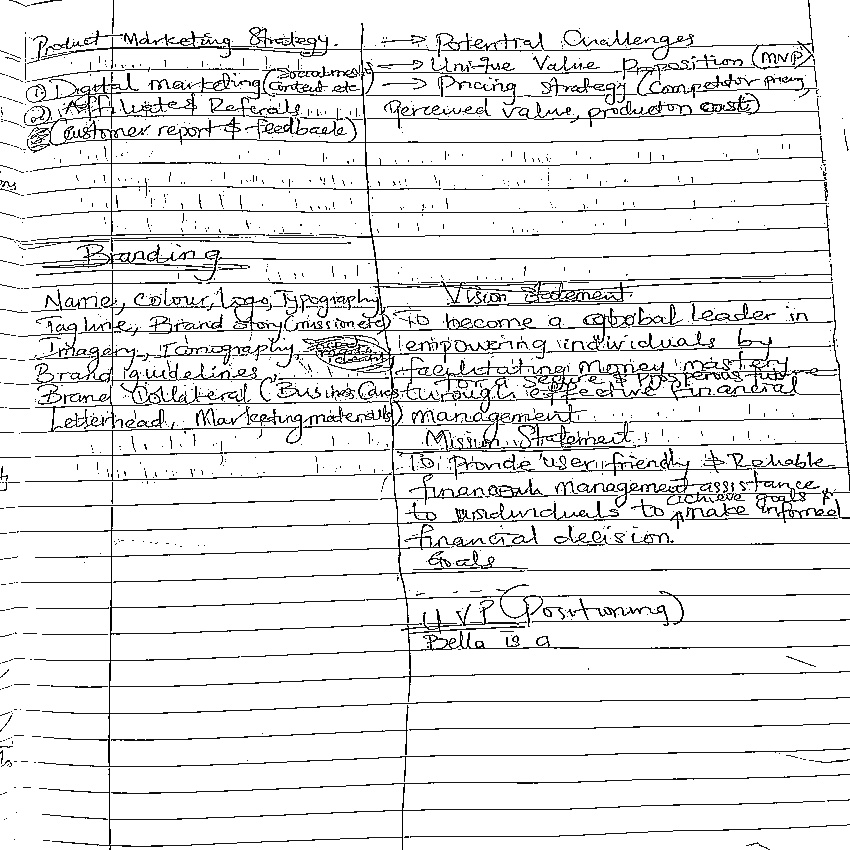 Product Marketing Strategy.
① Digital marketing (Social media, Content etc)
② Affiliates & Referals
(customer report & feedback)
→ Potential Challenges
→ Unique Value Proposition (MVP)
→ Pricing Strategy (Competitor pricing,
Perceived value, production cost)
Branding
Name, Colour, Logo, Typography
Tagline, Brand Story (mission etc)
Imagery, Iconography,
Brand guidelines
Brand Collateral (Business Cards
Letterhead, Marketing materials)
Vision Statement
To become a global leader in
empowering individuals by
facilitating money mastery
for a secure & prosperous future
through effective financial
management
Mission Statement
To Provide user friendly & Reliable
financial management assistance
to individuals to achieve goals & make informed
financial decision.
Goals
UVP (Positioning)
Bella is a